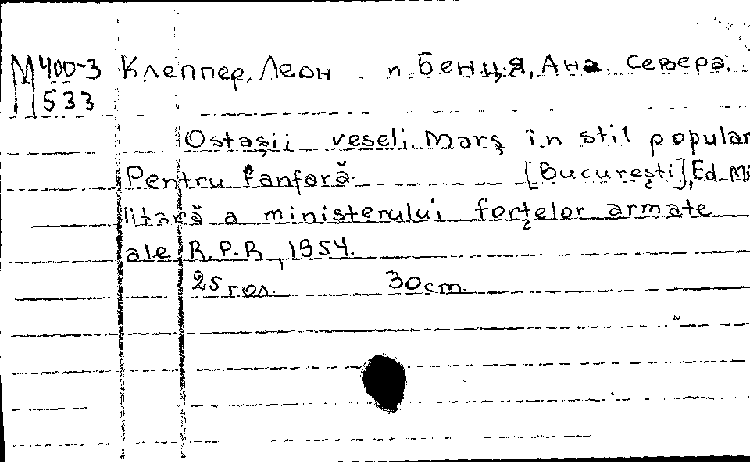 М 400-3 Клеппер, Леон п. Бенция, Ана Севера.
533
Ostașii veseli. Marș în stil popular
Pentru fanfară. [București], Ed. Mi
litară a ministerului forțelor armate
ale R.P.R., 1954.
25 гол. 30 cm.